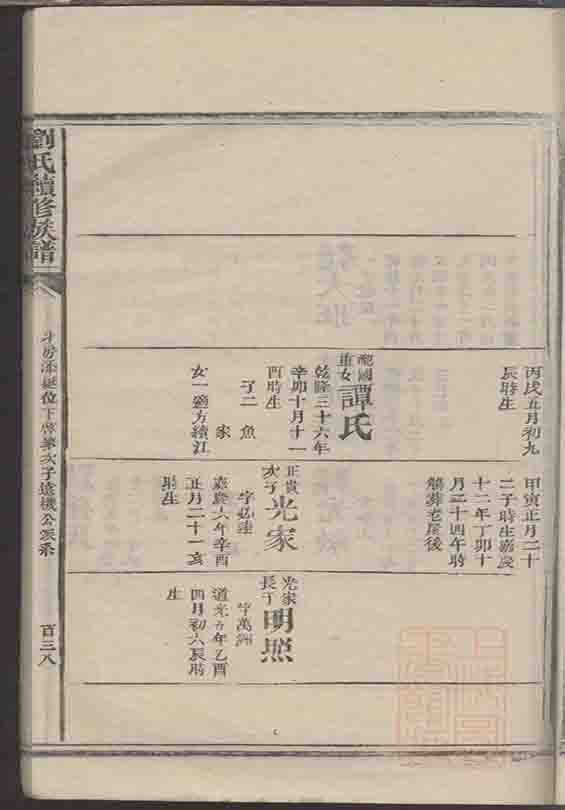 丙戌五月初九
辰時生
聰國
重女
譚氏
乾隆三十六年
辛卯十月十一
酉時生
子二 魚
家
女一適方續江
甲寅正月二十
二子時生嘉慶
十二年丁卯十
月二十四午時
歿葬老屋後
正貴
次子
光家
字弘達
嘉慶六年辛酉
正月二十一亥
時生
光家
長子
明照
字萬洲
道光五年乙酉
四月初六辰時
生
劉氏續修族譜
位下啓華次子遠機公派系
百三八